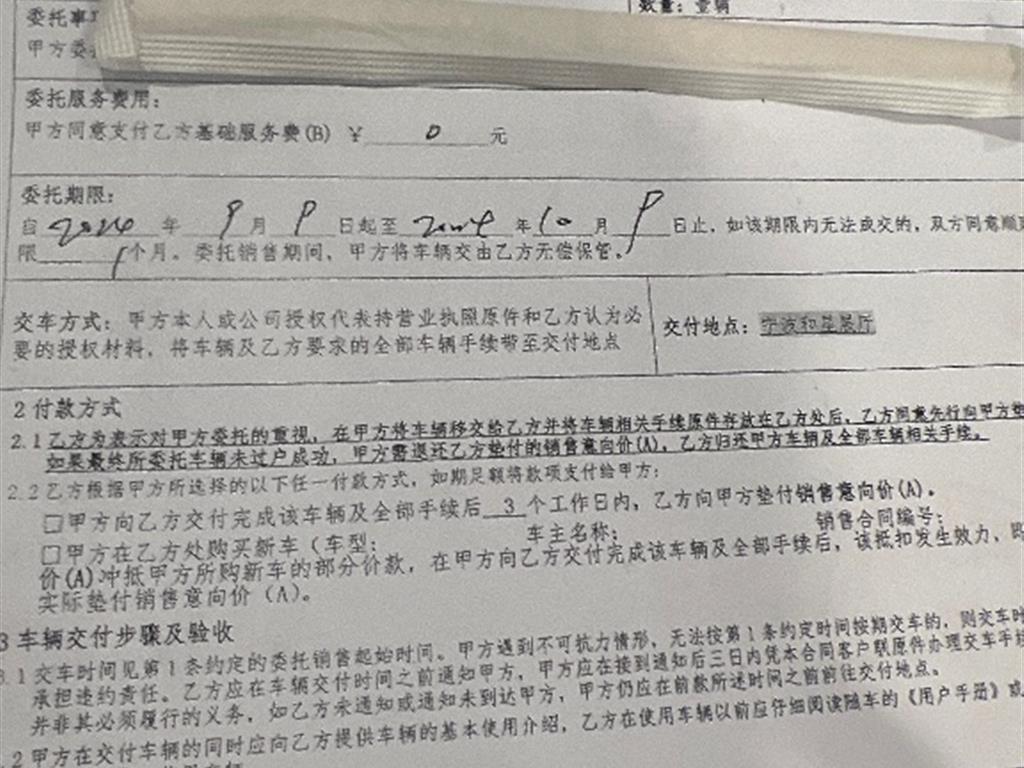 委托事
数量：壹辆
甲方委
委托服务费用：
甲方同意支付乙方基础服务费(B) ￥ 0 元
委托期限：
自 2024 年 9 月 9 日起至 2024 年 10 月 9 日止，如该期限内无法成交的，双方同意顺
限 1 个月。委托销售期间，甲方将车辆交由乙方无偿保管。
交车方式：甲方本人或公司授权代表持营业执照原件和乙方认为必
要的授权材料，将车辆及乙方要求的全部车辆手续带至交付地点
交付地点：宁波和星展厅
2 付款方式
2.1 乙方为表示对甲方委托的重视，在甲方将车辆移交给乙方并将车辆相关手续原件存放在乙方处后，乙方同意先行向甲方垫
如果最终所委托车辆未过户成功，甲方需退还乙方垫付的销售意向价(A)，乙方归还甲方车辆及全部车辆相关手续。
2.2 乙方根据甲方所选择的以下任一付款方式，如期足额将款项支付给甲方：
□甲方向乙方交付完成该车辆及全部手续后 3 个工作日内，乙方向甲方垫付销售意向价(A)。
□甲方在乙方处购买新车（车型： 车主名称： 销售合同编号：
价(A)冲抵甲方所购新车的部分价款，在甲方向乙方交付完成该车辆及全部手续后，该抵扣发生效力，即
实际垫付销售意向价（A）。
3 车辆交付步骤及验收
3.1 交车时间见第1条约定的委托销售起始时间。甲方遇到不可抗力情形，无法按第1条约定时间按期交车的，则交车时
承担违约责任。乙方应在车辆交付时间之前通知甲方，甲方应在接到通知后三日内凭本合同客户联原件办理交车手续
并非其必须履行的义务，如乙方未通知或通知未到达甲方，甲方仍应在前款所述时间之前前往交付地点。
.2 甲方在交付车辆的同时应向乙方提供车辆的基本使用介绍，乙方在使用车辆以前应仔细阅读随车的《用户手册》或